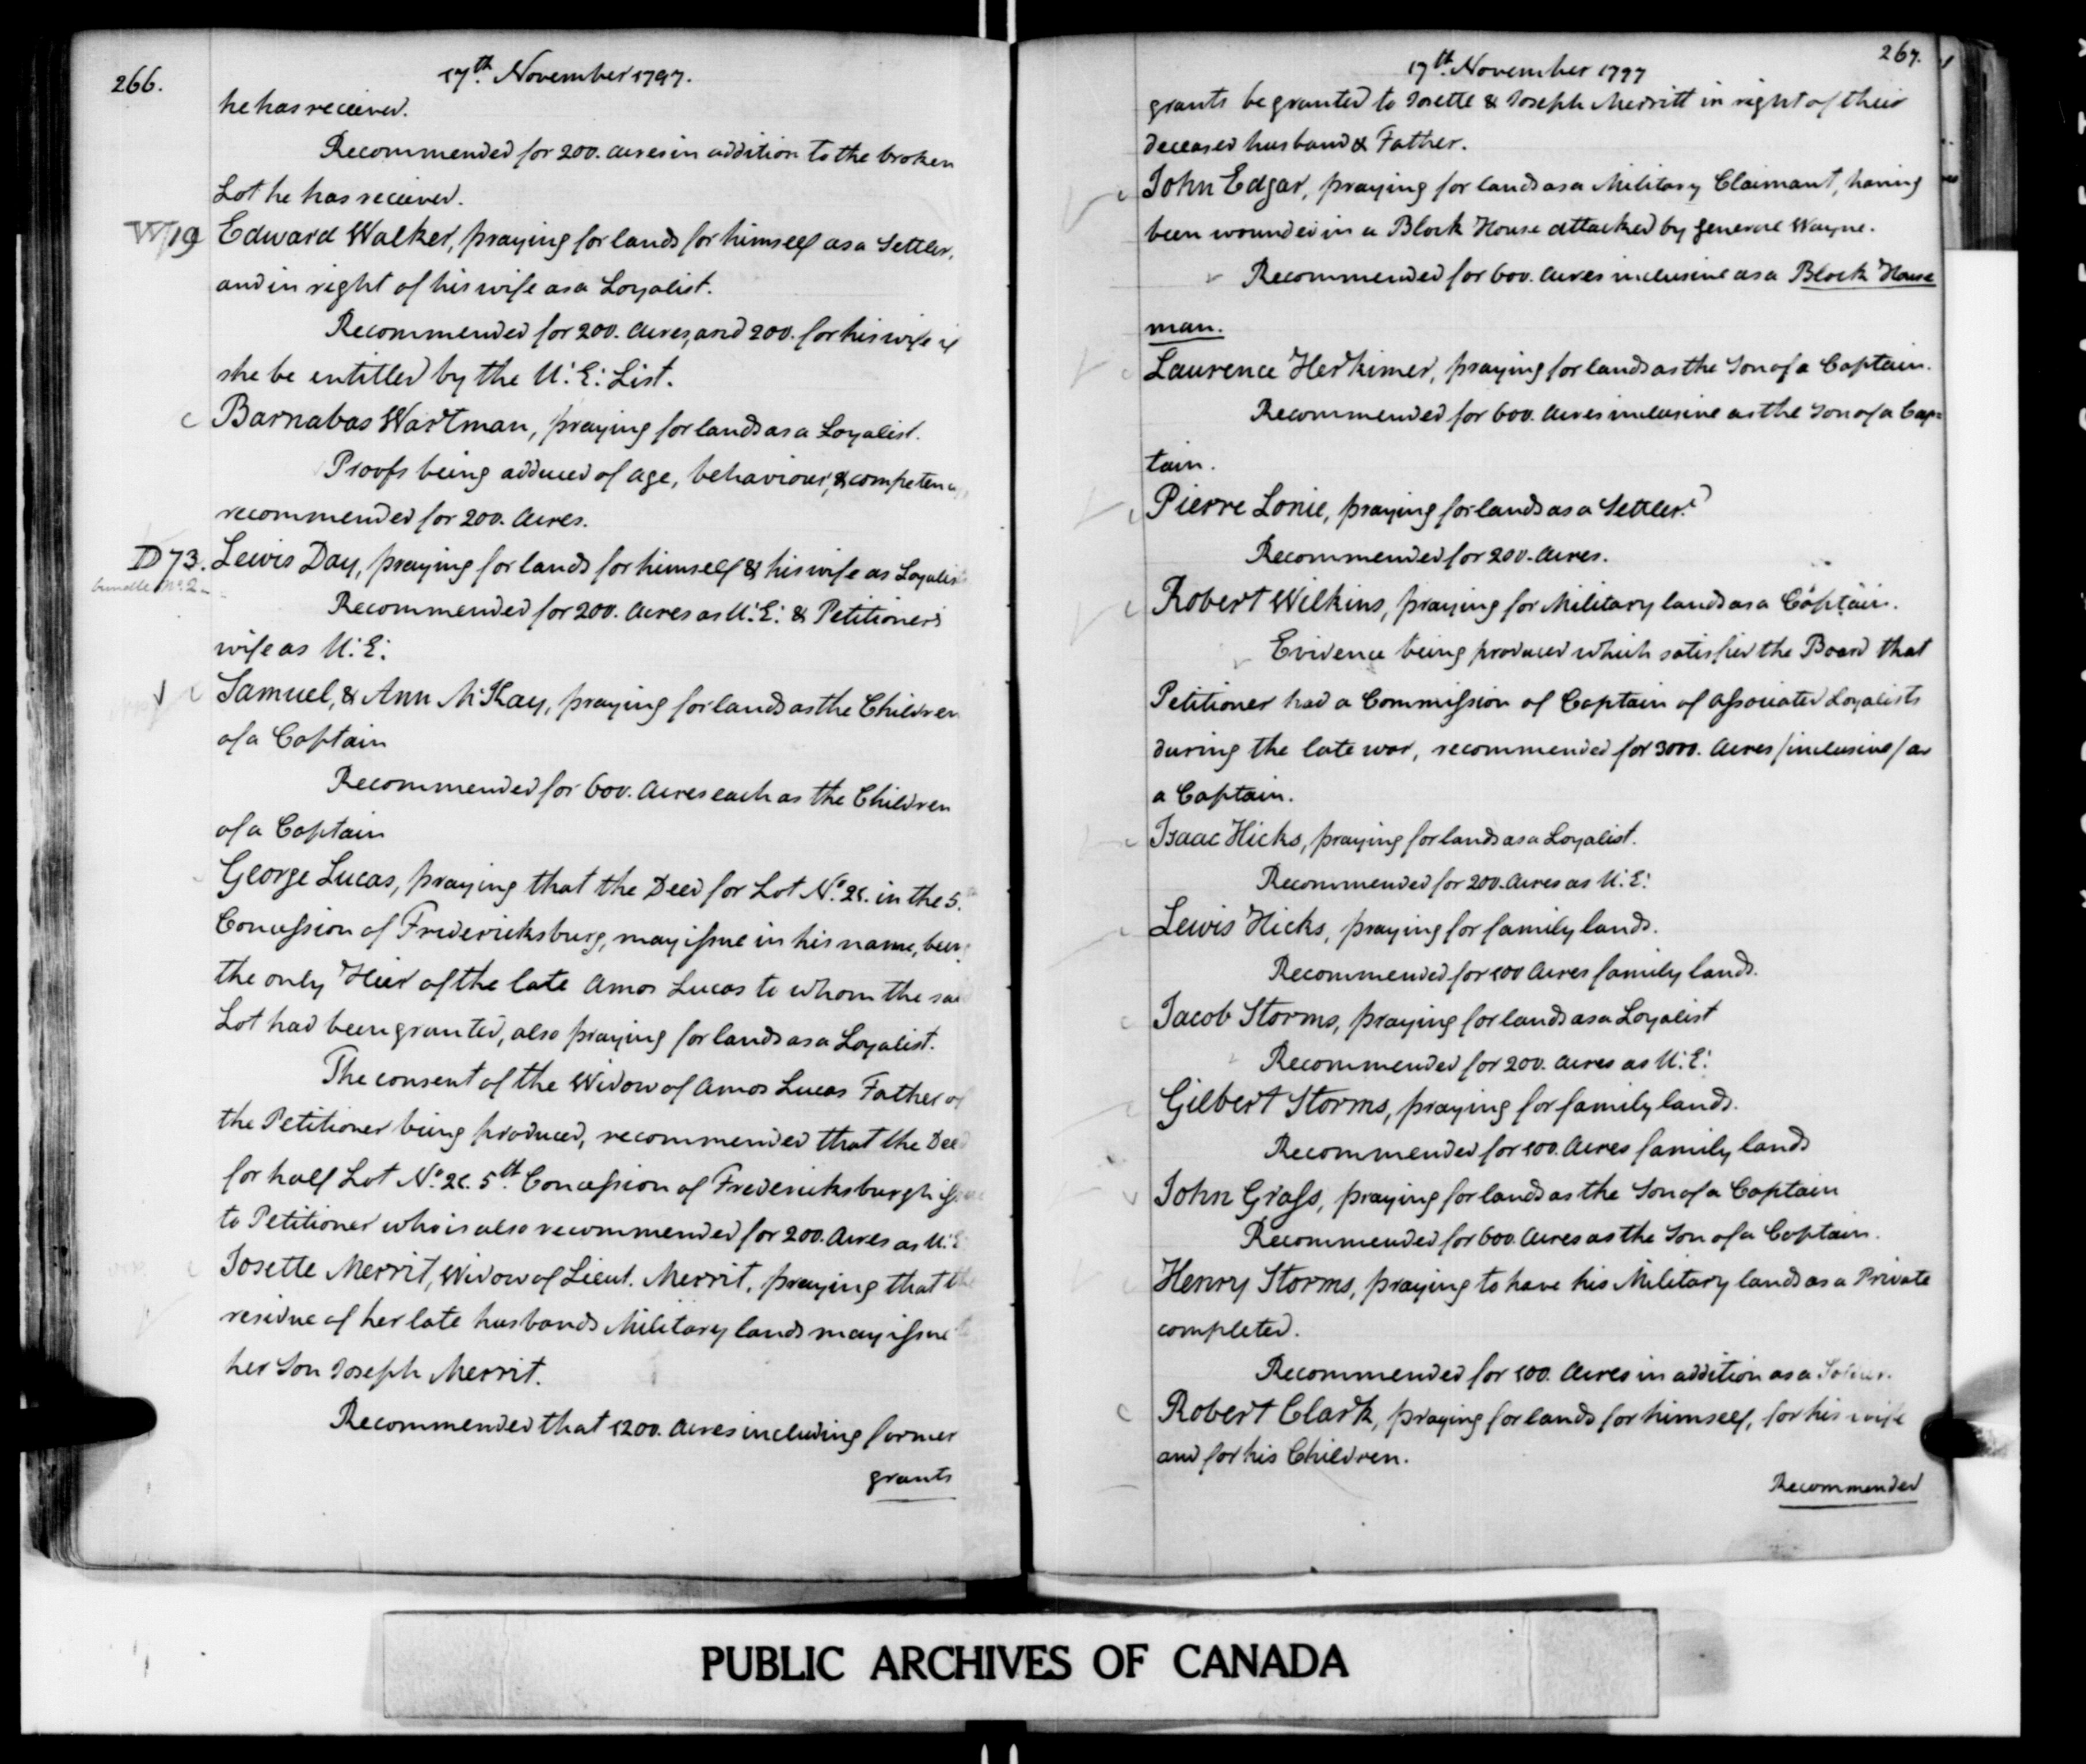 266.
17th November 1797.
he has received.
Recommended for 200. Acres in addition to the broken
Lot he has received.
W/19 Edward Walker, praying for lands for himself as a Settler,
and in right of his wife as a Loyalist.
Recommended for 200. Acres, and 200. for his wife if
she be entitled by the U: E: List.
Barnabas Wartman, praying for lands as a Loyalist.
Proofs being adduced of age, behaviour, & competency
recommended for 200. Acres.
D73. Lewis Day, praying for lands for himself & his wife as Loyalists
bundle No. 2
Recommended for 200. Acres as U: E: & Petitioners
wife as U: E:
Samuel, & Ann McKay, praying for lands as the Children
of a Captain
Recommended for 600. Acres each as the Children
of a Captain
George Lucas, praying that the Deed for Lot No. 21. in the 5.th
Concession of Fredericksburg, may issue in his name, being
the only Heir of the late Amos Lucas to whom the said
Lot had been granted, also praying for lands as a Loyalist.
The consent of the Widow of Amos Lucas Father of
the Petitioner being produced, recommended that the Deed
for half Lot No. 21. 5th Concession of Fredericksburgh issue
to Petitioner who is also recommended for 200. Acres as U: E
Josette Merrit, Widow of Lieut. Merrit, praying that the
residue of her late husbands Military lands may issue to
her Son Joseph Merrit.
Recommended that 1200. Acres including former
grants
267.
17th November 1797
grants be granted to Josette & Joseph Merritt in right of their
deceased husband & Father.
John Edgar, praying for lands as a Military Claimant, having
been wounded in a Block House attacked by General Wayne.
Recommended for 600. Acres inclusive as a Block House
man.
Laurence Herkimer, praying for lands as the Son of a Captain.
Recommended for 600. Acres inclusive as the Son of a Cap=
tain.
Pierre Lorie, praying for lands as a Settler.
Recommended for 200. Acres.
Robert Wilkins, praying for Military lands as a Captain.
Evidence being produced which satisfied the Board that
Petitioner had a Commission of Captain of Associated Loyalists
during the late war, recommended for 3000. Acres /inclusive/ as
a Captain.
Isaac Hicks, praying for lands as a Loyalist.
Recommended for 200. Acres as U: E:
Lewis Hicks, praying for family lands.
Recommended for 100 Acres family lands.
Jacob Storms, praying for lands as a Loyalist
Recommended for 200. Acres as U: E:
Gilbert Storms, praying for family lands.
Recommended for 100. Acres family lands
John Grass, praying for lands as the Son of a Captain
Recommended for 600. Acres as the Son of a Captain.
Henry Storms, praying to have his Military lands as a Private
completed.
Recommended for 100. Acres in addition as a Soldier.
Robert Clark, praying for lands for himself, for his wife
and for his Children.
Recommended
PUBLIC ARCHIVES OF CANADA